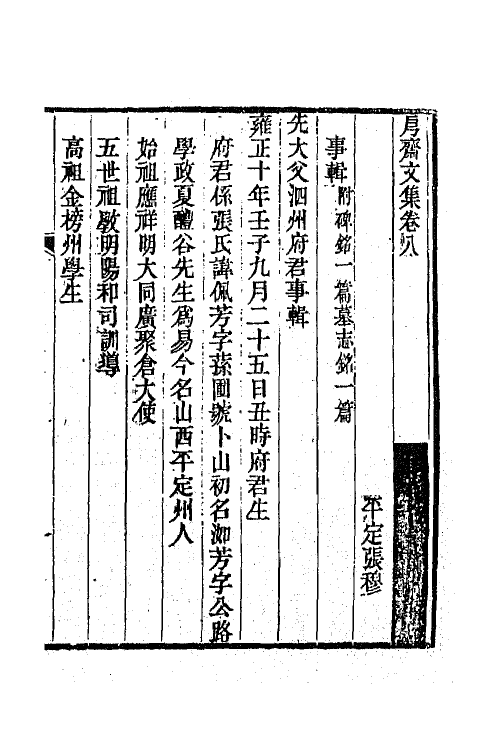 㐆齋文集卷八
平定張穆
事輯附碑銘一篇墓志銘一篇
先大父泗州府君事輯
雍正十年壬子九月二十五日丑時府君生
府君係張氏諱佩芳字蓀圃號卜山初名汭芳字公路
學政夏醴谷先生爲易今名山西平定州人
始祖應祥明大同廣聚倉大使
五世祖斆明陽和司訓導
高祖金榜州學生